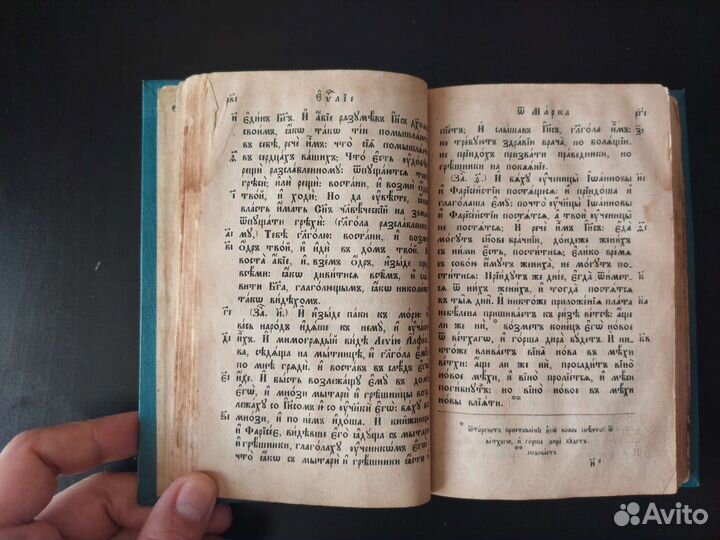 рв҃і Єѵⷢ҇лїе
и҆ є҆ди́нъ бг҃ъ. И҆ а҆́бїе разꙋмѣ́въ і҆и҃съ дꙋ́хомъ
свои́мъ, ꙗ҆́кѡ та́кѡ ті́и помышлѧ́ютъ
въ себѣ̀, речѐ и҆̀мъ: что̀ сїѧ̑ помышлѧ́ете
въ сердца́хъ ва́шихъ; Что̀ є҆́сть ᲂу҆до́бѣе
рещѝ разсла́бленномꙋ: ѿпꙋща́ютсѧ
грѣсѝ; и҆лѝ рещѝ: воста́ни, и҆ возмѝ ѻ҆́дръ
тво́й, и҆ ходѝ; Но да ᲂу҆вѣ́сте, ꙗ҆́кѡ
вла́сть и҆́мать сн҃ъ чл҃вѣ́ческїй на землѝ
ѿпꙋща́ти грѣхѝ: (глаго́ла разсла́бленно-
мꙋ,) Тебѣ̀ глаго́лю: воста́ни, и҆ возмѝ
ѻ҆́дръ тво́й, и҆ и҆дѝ въ до́мъ тво́й. И҆
воста̀ а҆́бїе, и҆ взе́мъ ѻ҆́дръ, и҆зы́де пред̾
всѣ́ми: ꙗ҆́кѡ диви́тисѧ всѣ̑мъ, и҆ сла-
ви́ти бг҃а, глаго́лющымъ, ꙗ҆́кѡ николи́же
та́кѡ ви́дѣхомъ.
(За҄. и҃.) И҆ и҆зы́де па́ки къ мо́рю: и҆
ве́сь наро́дъ и҆дѧ́ше къ немꙋ̀, и҆ ᲂу҆ча́ше
и҆̀хъ. И҆ мимогрѧды́й ви́дѣ леѵі́ю а҆лфе́ова,
сѣдѧ́ща на мы́тницѣ, и҆ глаго́ла є҆мꙋ̀:
по мнѣ̀ грѧдѝ. и҆ воста́въ в̾слѣ́дъ є҆гѡ̀
и҆́де. И҆ бы́сть возлежа́щꙋ є҆мꙋ̀ въ домꙋ̀
є҆гѡ̀, и҆ мно́зи мытарѝ и҆ грѣ́шницы воз-
лежа́хꙋ со і҆и҃сомъ и҆ со ᲂу҆чн҃ки̑ є҆гѡ̀: бѧ́хꙋ бо
мно́зи, и҆ по не́мъ и҆до́ша. И҆ кни́жницы
и҆ фарїсе́є, ви́дѣвше є҆го̀ ꙗ҆дꙋ́ща съ мытарѝ
и҆ грѣ́шники, глаго́лахꙋ ᲂу҆ченикѡ́мъ є҆гѡ̀:
что̀ ꙗ҆́кѡ съ мытарѝ и҆ грѣ́шники ꙗ҆́стъ и҆
Ѿ Ма́рка рг҃і
пїе́тъ; И҆ слы́шавъ і҆и҃съ, глаго́ла и҆̀мъ: з҃і
не тре́бꙋютъ здра́вїи врача̀, но болѧ́щїи.
не прїидо́хъ призва́ти првⷣники, но
грѣ́шники на покаѧ́нїе.
(За҄. ѳ҃.) И҆ бѧ́хꙋ ᲂу҆ченицы̀ і҆ѡа́ннѡвы и҃і
и҆ фарїсе́йстїи постѧ́щесѧ. и҆ прїидо́ша и҆
глаго́лаша є҆мꙋ̀: почто̀ ᲂу҆ченицы̀ і҆ѡа́ннѡвы
и҆ фарїсе́йстїи постѧ́тсѧ, а҆ твоѝ ᲂу҆ченицы̀
не постѧ́тсѧ; И҆ речѐ и҆̀мъ і҆и҃съ: є҆да̀ ѳ҃і
мо́гꙋтъ сы́нове бра́чнїи, до́ндеже жени́хъ
съ ни́ми є҆́сть, пости́тисѧ; є҆ли́ко вре́мѧ
съ собо́ю и҆́мꙋтъ жениха̀, не мо́гꙋтъ по-
сти́тисѧ: Прїи́дꙋтъ же дні́е, є҆гда̀ ѿи́мет- к҃
сѧ ѿ ни́хъ жени́хъ, и҆ тогда̀ постѧ́тсѧ
въ ты̑ѧ дни̑. И҆ никто́же приложе́нїѧ пла́та к҃а
небѣ́лена пришива́етъ къ ри́зѣ ве́тсѣ: а҆́ще
ли же нѝ, * во́зметъ коне́цъ є҆гѡ̀ но́вое
ѿ ве́тхагѡ, и҆ го́рша дира̀ бꙋ́детъ. И҆ ни- к҃в
кто́же влива́етъ вїна̀ но́ва въ мѣ́хи
ве́тхи: а҆́ще ли же нѝ, просади́тъ вїно̀
но́вое мѣ́хи, и҆ вїно̀ пролїе́тсѧ, и҆ мѣ́си
поги́бнꙋтъ: но вїно̀ но́во въ мѣ́хи
но́вы влїѧ́ти.
* ѿто́ргнетъ приставле́нїе є҆гѡ̀ но́вое ѿ
ве́тхагѡ, и҆ го́рша дира̀ бꙋ́детъ.
подоба́етъ
и҃ *
Avito